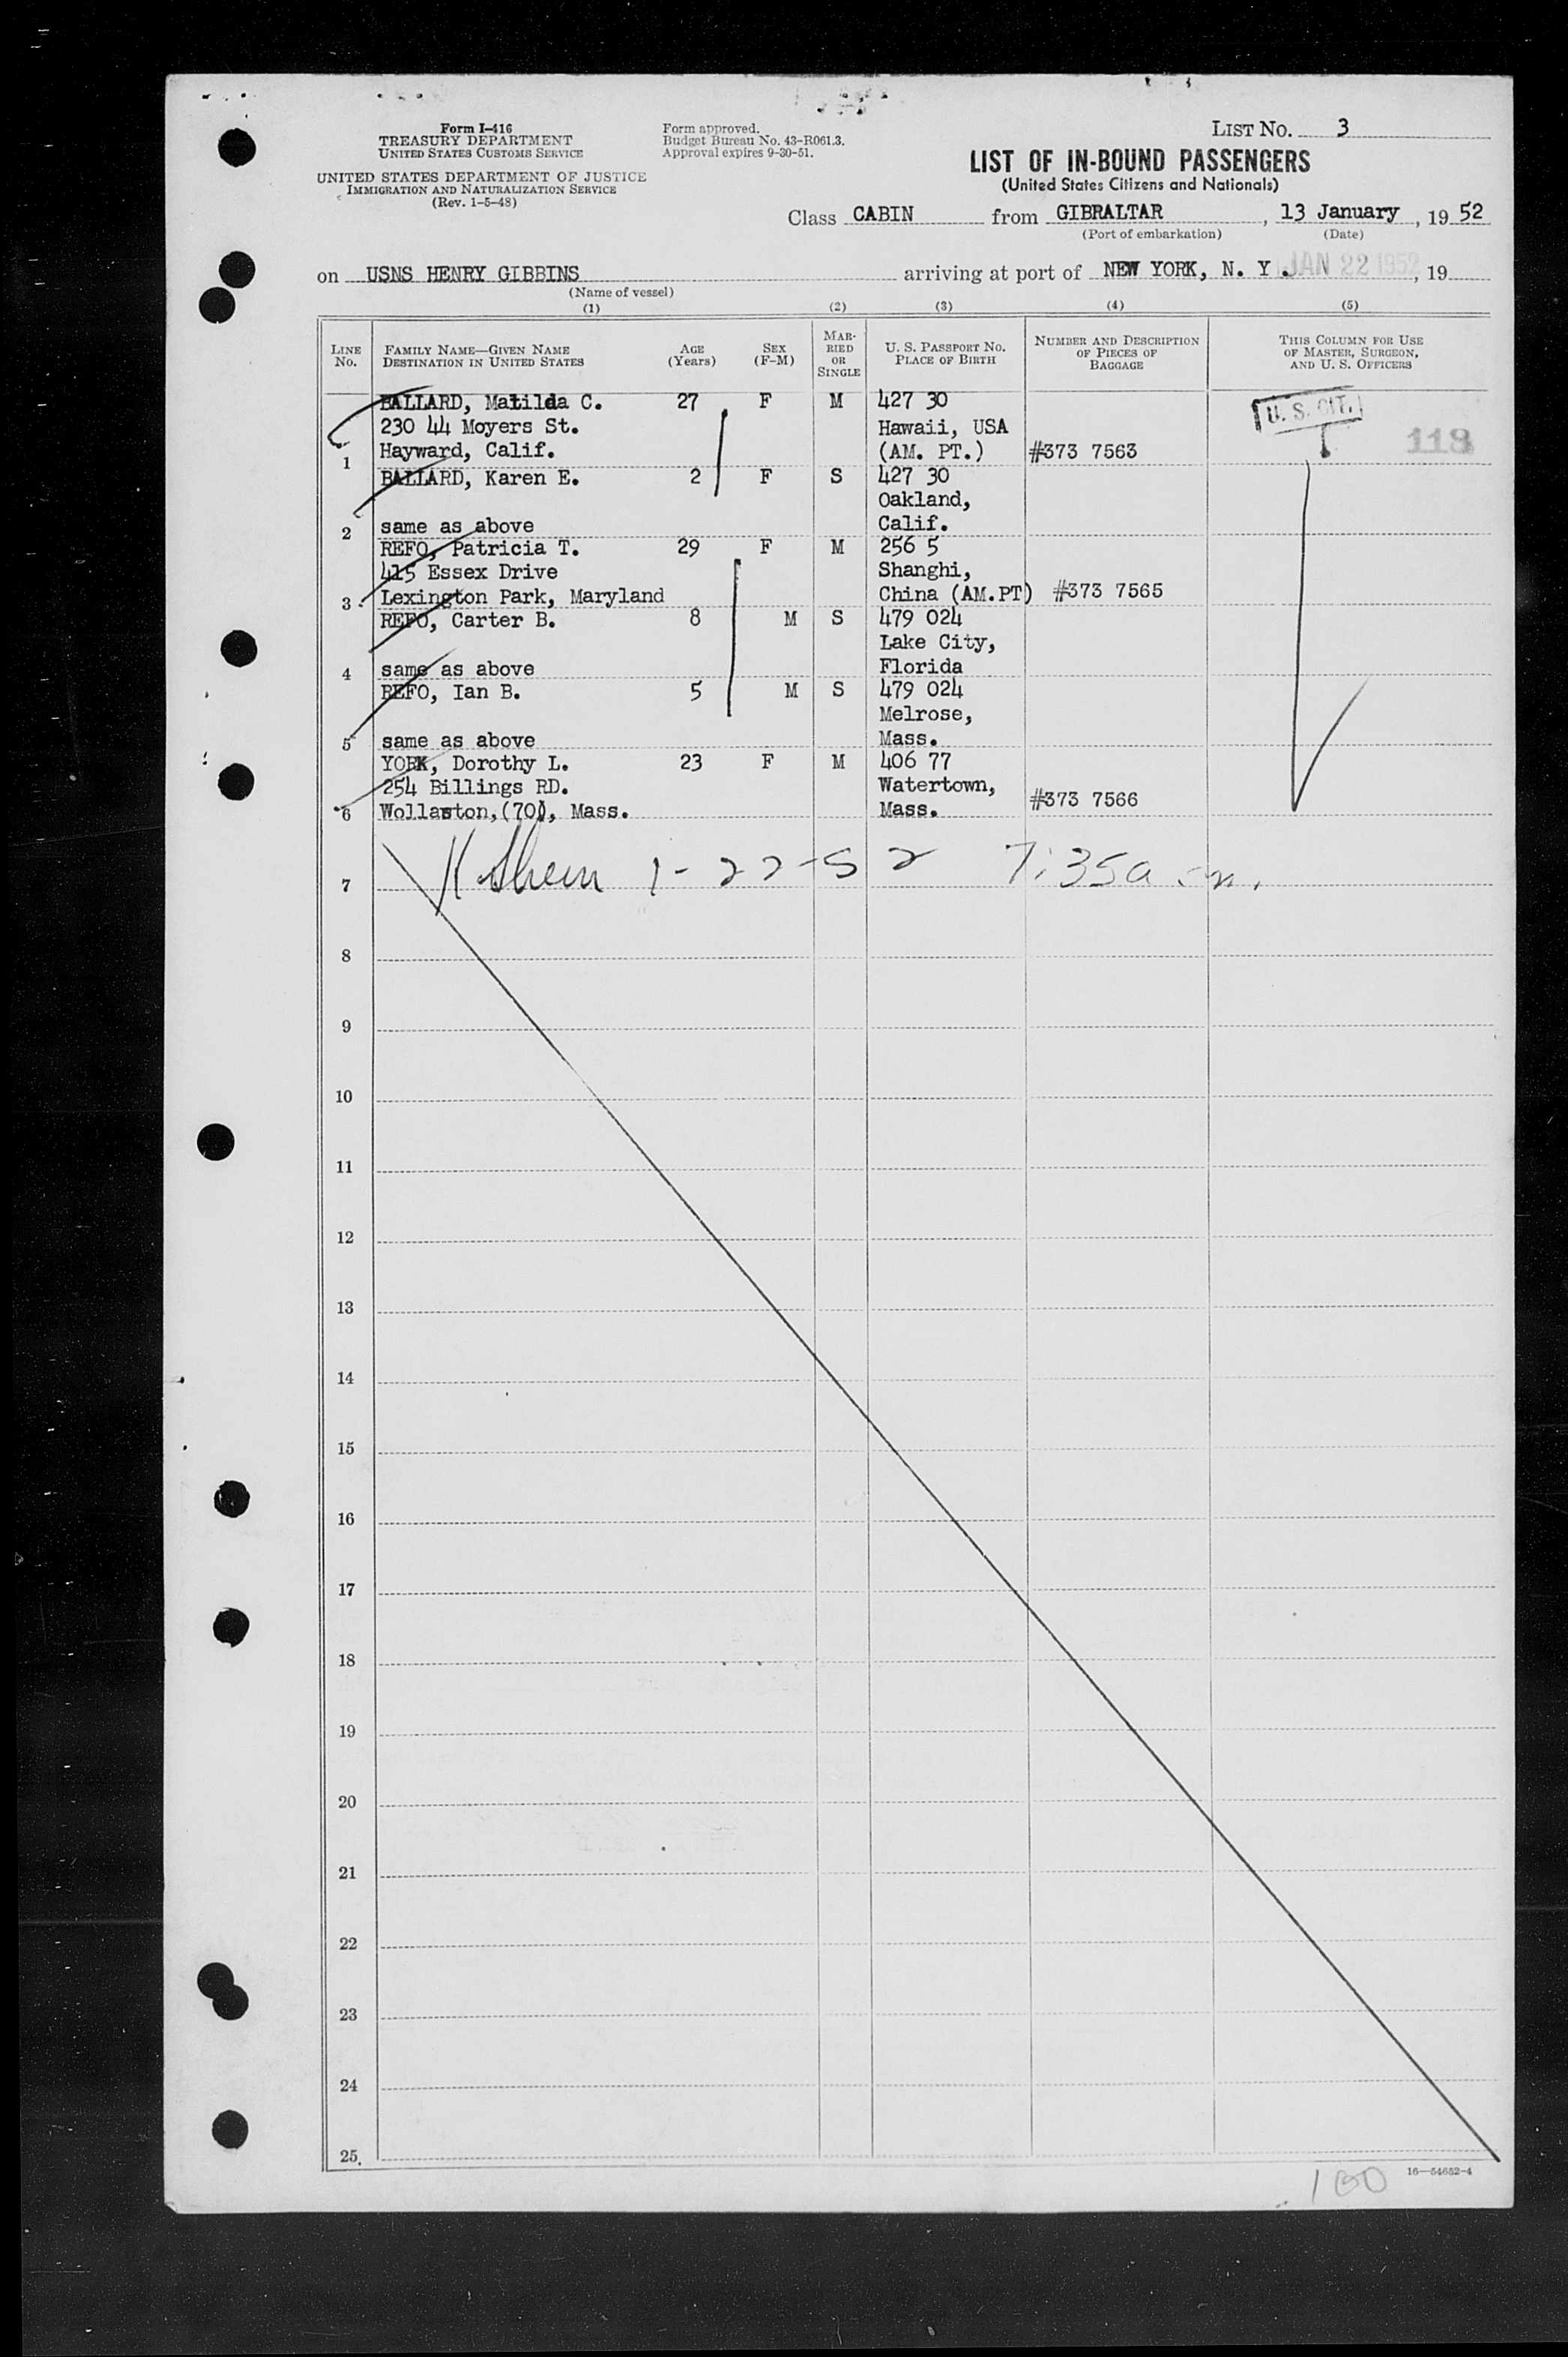 Form I-416
TREASURY DEPARTMENT
UNITED STATES CUSTOMS SERVICE
UNITED STATES DEPARTMENT OF JUSTICE
IMMIGRATION AND NATURALIZATION SERVICE
(Rev. 1-5-48)
Form approved.
Budget Bureau No. 43-R061.3.
Approval expires 9-30-51.
LIST NO. 3
LIST OF IN-BOUND PASSENGERS
(United States Citizens and Nationals)
Class CABIN from GIBRALTAR, 13 January, 19 52
(Port of embarkation) (Date)
on USNS HENRY GIBBINS arriving at port of NEW YORK, N. Y. JAN 22 1952, 19
(Name of vessel)
(1) (2) (3) (4) (5)
LINE NO. FAMILY NAME—GIVEN NAME DESTINATION IN UNITED STATES AGE (Years) SEX (F-M) MARRIED OR SINGLE U. S. PASSPORT NO. PLACE OF BIRTH NUMBER AND DESCRIPTION OF PIECES OF BAGGAGE THIS COLUMN FOR USE OF MASTER, SURGEON, AND U. S. OFFICERS
BALLARD, Matilda C. 27 F M 427 30 U. S. CIT.
230 44 Moyers St. Hawaii, USA
1 Hayward, Calif. (AM. PT.) #373 7563 118
BALLARD, Karen E. 2 F S 427 30
Oakland,
2 same as above Calif.
REFO, Patricia T. 29 F M 256 5
415 Essex Drive Shanghi,
3 Lexington Park, Maryland China (AM.PT) #373 7565
REFO, Carter B. 8 M S 479 024
Lake City,
4 same as above Florida
REFO, Ian B. 5 M S 479 024
Melrose,
5 same as above Mass.
YORK, Dorothy L. 23 F M 406 77
254 Billings RD. Watertown,
6 Wollaston,(70), Mass. Mass. #373 7566
7 1-22-52 7:35a.m.
8
9
10
11
12
13
14
15
16
17
18
19
20
21
22
23
24
25
100
16—54652-4